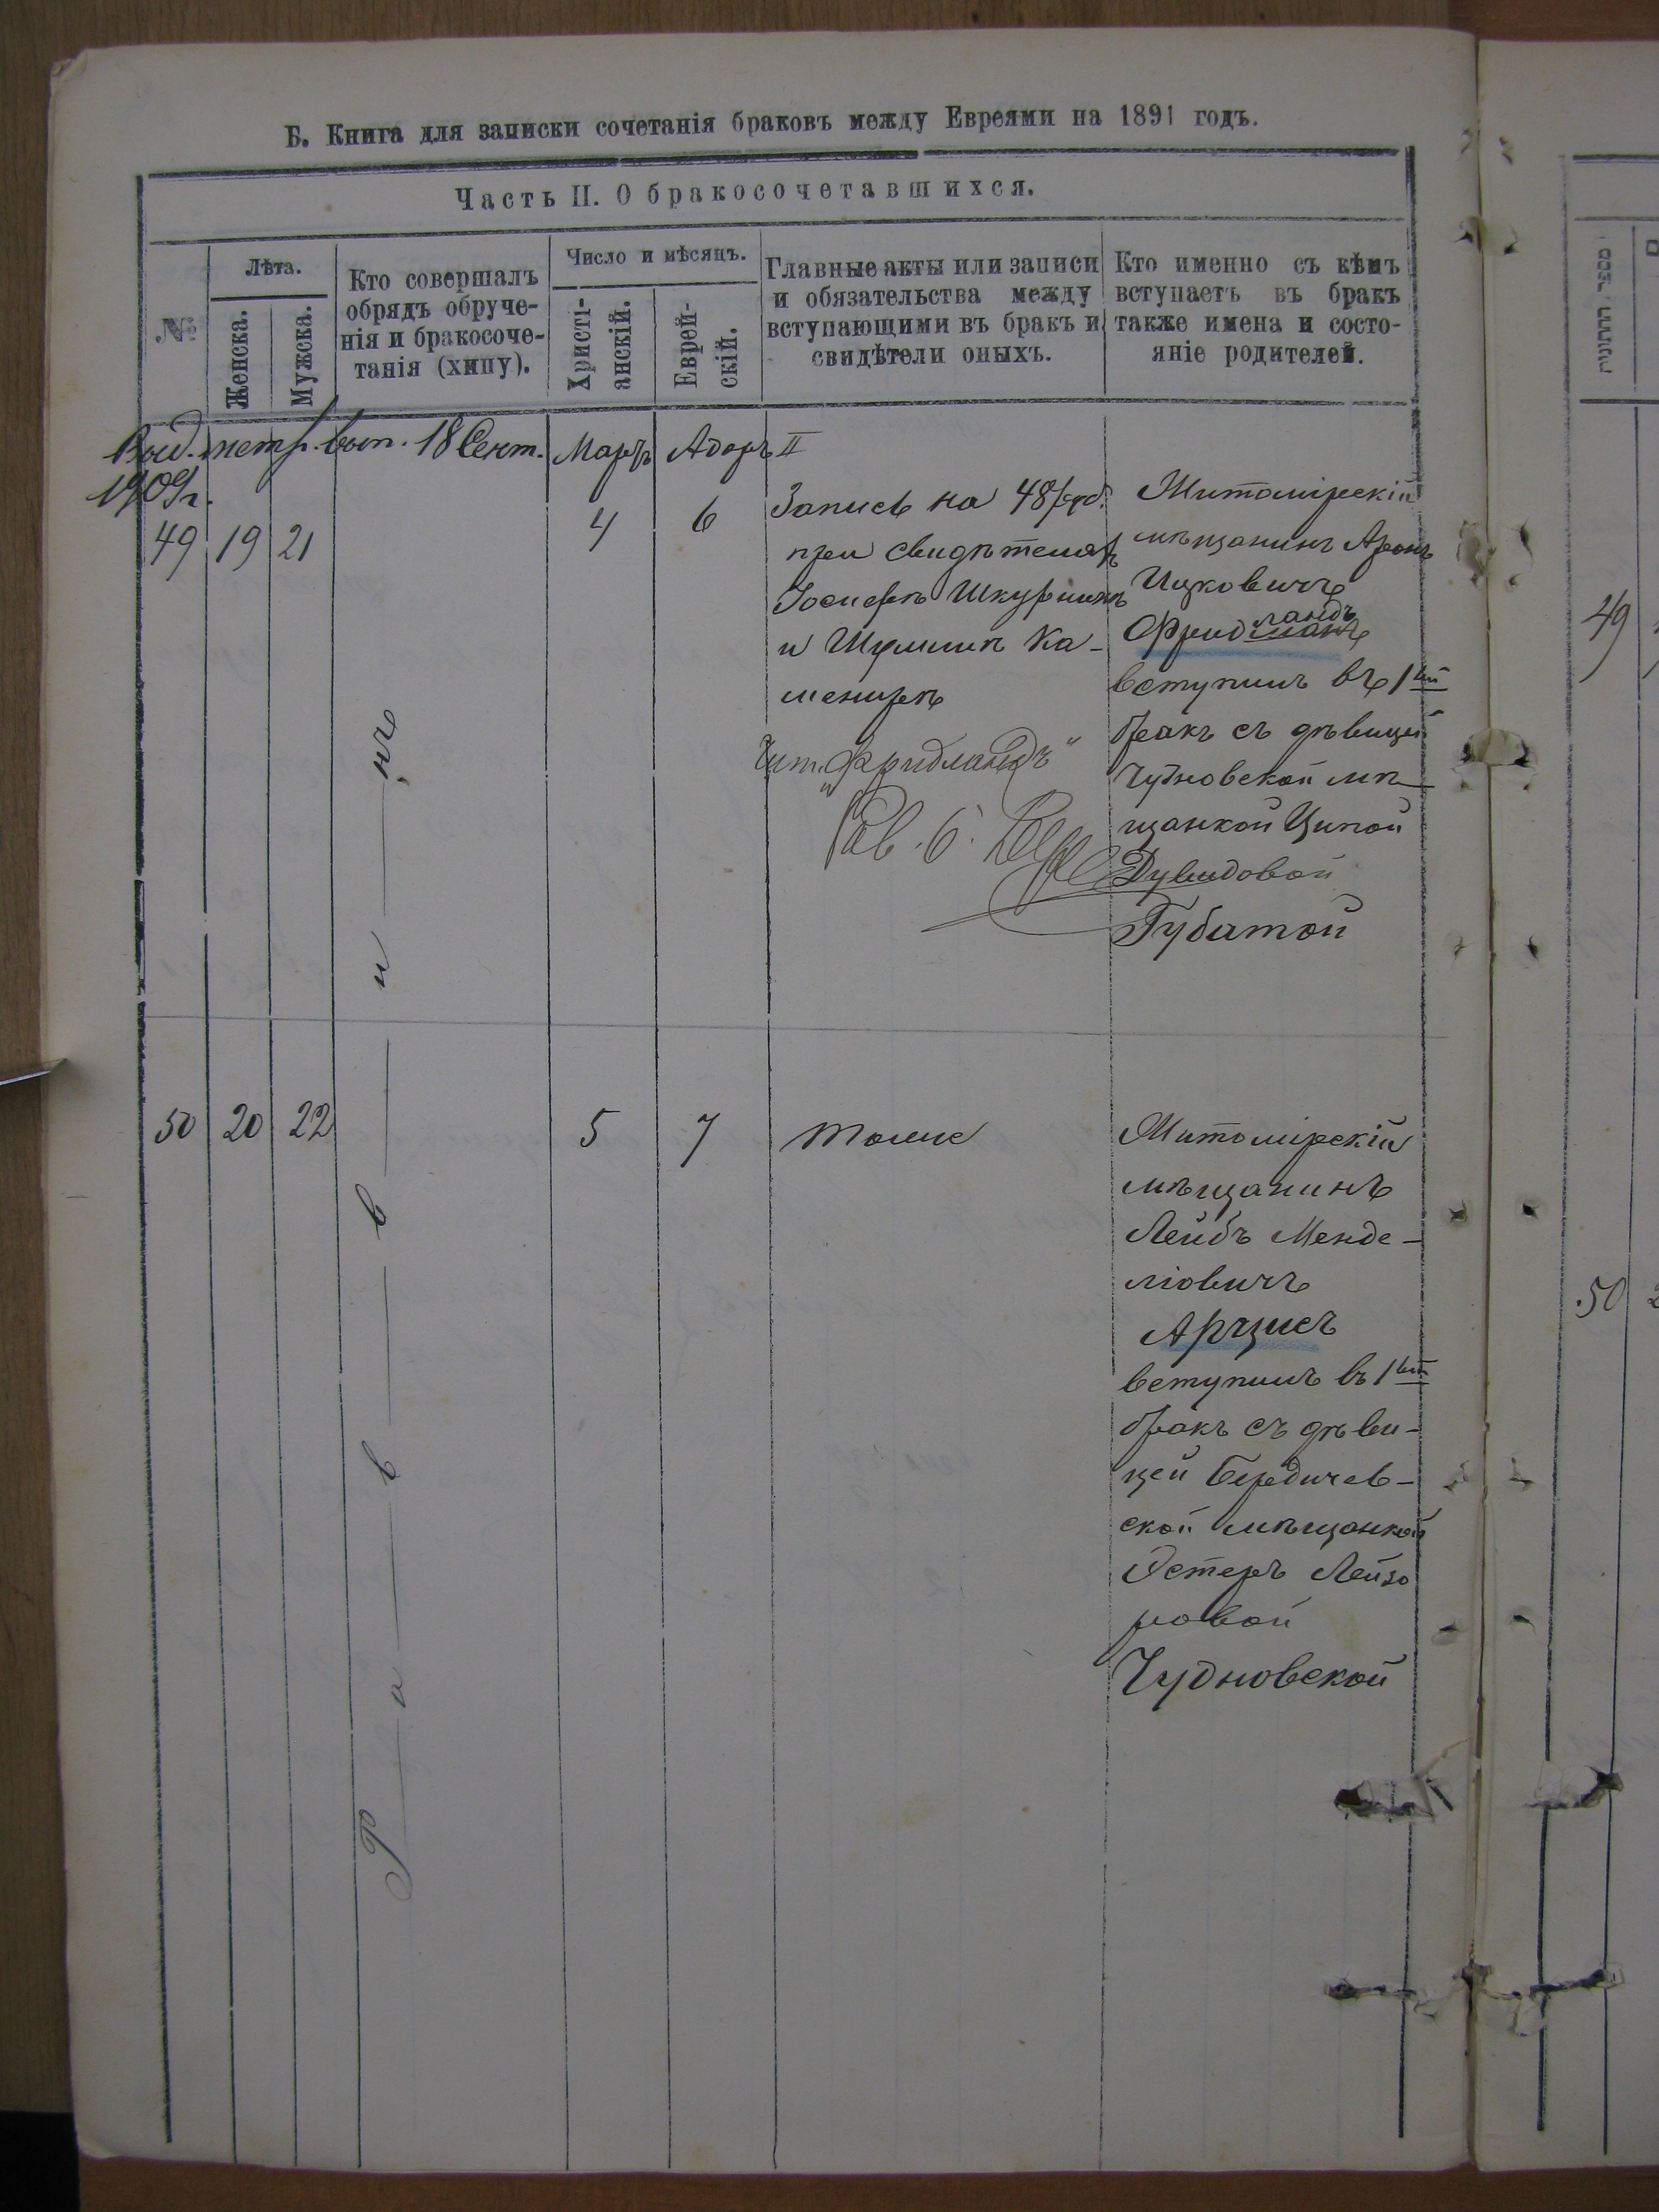 Б. Книга для записки сочетанія браковъ между Евреями на 1891 годъ.
Часть II. О бракосочетавшихся.
№
Лѣта.
Женска.
Мужска.
Кто совершалъ
обрядъ обруче-
нія и бракосоче-
танія (хипу).
Число и мѣсяцъ.
Христі-
анскій.
Еврей-
скій.
Главные акты или записи
и обязательства между
вступающими въ бракъ и
свидѣтели оныхъ.
Кто именно съ кѣмъ
вступаетъ въ бракъ
также имена и состо-
яніе родителей.
Выд. метр. вып. 18 Сент.
1909г.
Мартъ
Адаръ II
49 19 21
Раввинъ
4
6
Запись на 48 руб.
при свидѣтеляхъ
Іосифѣ Шкурникѣ
и Шулимѣ Ка-
менирѣ
Чит. „Фридландъ"
Рав. б.
Житомірскій
мѣщанинъ Аронъ
Ицковичъ
ландъ
Фридманъ
вступилъ въ 1ый
бракъ съ дѣвицей
Чудновской мѣ
щанкой Ципой
Дувидовой
Губатой
50 20 22
5
7
тоже
Житомірскій
мѣщанинъ
Лейбъ Менде-
ліовичъ
Арцисъ
вступилъ въ 1ый
бракъ съ дѣви-
цей Бердичев-
ской мѣщанкой
Эстеръ Лейзо
ровой
Чудновской
49
50